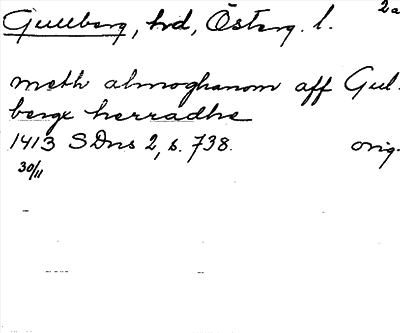 Gullberg, hrd, Österg. l. 2a
meth almoghanom aff Gul-
berge herradhe
1413 SDns 2, s. 738. orig.
30/11